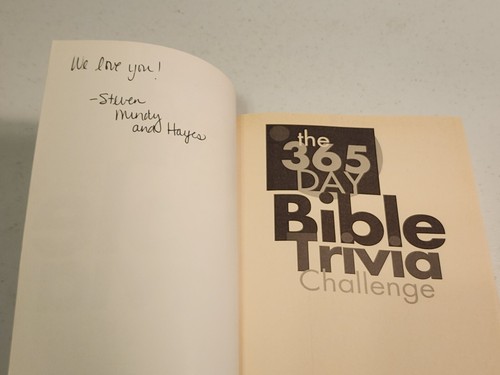 We love you!
-Steven
Mindy
and Hayes
the
365
DAY
Bible
Trivia
Challenge